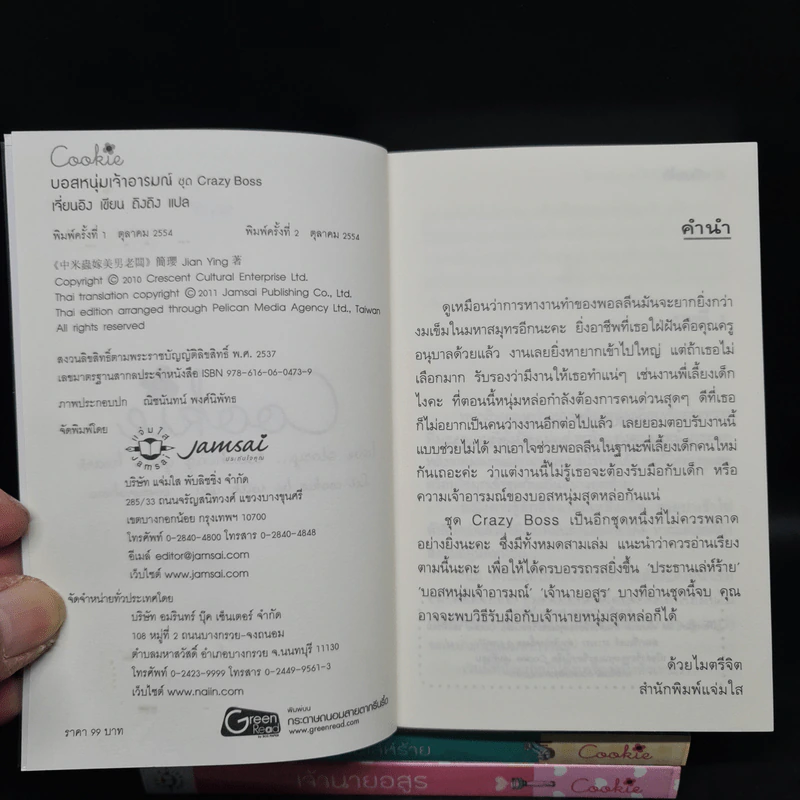 Cookie
บอสหนุ่มเจ้าอารมณ์ ชุด Crazy Boss
เจี่ยนอิง เขียน ถิงถิง แปล
พิมพ์ครั้งที่ 1 ตุลาคม 2554 พิมพ์ครั้งที่ 2 ตุลาคม 2554
《中米蟲嫁美男老闆》簡瓔 Jian Ying 著
Copyright © 2010 Crescent Cultural Enterprise Ltd.
Thai translation copyright © 2011 Jamsai Publishing Co., Ltd.
Thai edition arranged through Pelican Media Agency Ltd., Taiwan
All rights reserved
สงวนลิขสิทธิ์ตามพระราชบัญญัติลิขสิทธิ์ พ.ศ. 2537
เลขมาตรฐานสากลประจำหนังสือ ISBN 978-616-06-0473-9
ภาพประกอบปก ณิชนันทน์ พงศ์นิพัทธ
จัดพิมพ์โดย
แจ่มใส
Jamsai
jamsai
บริษัท แจ่มใส พับลิชชิ่ง จำกัด
285/33 ถนนจรัญสนิทวงศ์ แขวงบางขุนศรี
เขตบางกอกน้อย กรุงเทพฯ 10700
โทรศัพท์ 0-2840-4800 โทรสาร 0-2840-4848
อีเมล์ editor@jamsai.com
เว็บไซต์ www.jamsai.com
จัดจำหน่ายทั่วประเทศโดย
บริษัท อมรินทร์ บุ๊ค เซ็นเตอร์ จำกัด
108 หมู่ที่ 2 ถนนบางกรวย-จงถนอม
ตำบลมหาสวัสดิ์ อำเภอบางกรวย จ.นนทบุรี 11130
โทรศัพท์ 0-2423-9999 โทรสาร 0-2449-9561-3
เว็บไซต์ www.naiin.com
ราคา 99 บาท
Green Read
พิมพ์บน
กระดาษถนอมสายตากรีนรี้ด
www.greenread.com
คำนำ
ดูเหมือนว่าการหางานทำของพอลลีนมันจะยากยิ่งกว่า
งมเข็มในมหาสมุทรอีกนะคะ ยิ่งอาชีพที่เธอใฝ่ฝันคือคุณครู
อนุบาลด้วยแล้ว งานเลยยิ่งหายากเข้าไปใหญ่ แต่ถ้าเธอไม่
เลือกมาก รับรองว่ามีงานให้เธอทำแน่ๆ เช่นงานพี่เลี้ยงเด็ก
ไงคะ ที่ตอนนี้หนุ่มหล่อกำลังต้องการคนด่วนสุดๆ ดีที่เธอ
ก็ไม่อยากเป็นคนว่างงานอีกต่อไปแล้ว เลยยอมตอบรับงานนี้
แบบช่วยไม่ได้ มาเอาใจช่วยพอลลีนในฐานะพี่เลี้ยงเด็กคนใหม่
กันเถอะค่ะ ว่าแต่งานนี้ไม่รู้เธอจะต้องรับมือกับเด็ก หรือ
ความเจ้าอารมณ์ของบอสหนุ่มสุดหล่อกันแน่
ชุด Crazy Boss เป็นอีกชุดหนึ่งที่ไม่ควรพลาด
อย่างยิ่งนะคะ ซึ่งมีทั้งหมดสามเล่ม แนะนำว่าควรอ่านเรียง
ตามนี้นะคะ เพื่อให้ได้ครบอรรถรสยิ่งขึ้น 'ประธานเล่ห์ร้าย'
'บอสหนุ่มเจ้าอารมณ์' 'เจ้านายอสูร' บางทีอ่านชุดนี้จบ คุณ
อาจจะพบวิธีรับมือกับเจ้านายหนุ่มสุดหล่อก็ได้
ด้วยไมตรีจิต
สำนักพิมพ์แจ่มใส
ห์ร้าย
Cookie
เจ้านายอสูร
Cookie